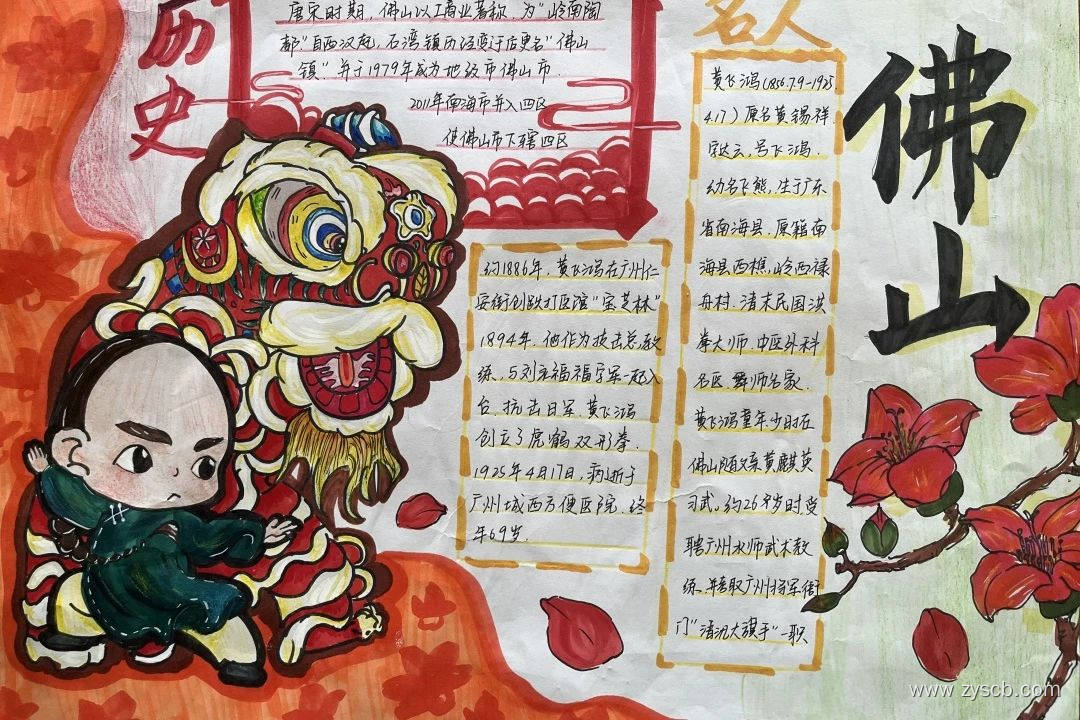 佛山
历史
唐宋时期，佛山以工商业著称，为"岭南陶
都"自西汉起，石湾镇历经变迁后更名"佛山
镇"并于1979年成为地级市佛山市.
2011年南海市并入四区
使佛山市下辖四区
名人
黄飞鸿(1856.7.9-1925
4.17）原名黄锡祥.
字达云，号飞鸿.
幼名飞熊，生于广东
省南海县.原籍南
海县西樵，岭西禄
舟村.清末民国洪
拳大师.中医外科
名医.舞师名家.
黄飞鸿童年少时在
佛山随父亲黄麒英
习武。约26岁时受
聘广州水师武术教
练.考取广州将军衙
门"清汛大旗手"一职
约1886年，黄飞鸿在广州仁
安街创跌打医馆"宝芝林"
1894年.他作为技击总教
练，与刘永福福字军一起入
台.抗击日军.黄飞鸿
创立了虎鹤双形拳.
1925年4月17日,病逝于
广州城西方便医院.终
年69岁.
www.zyscb.com